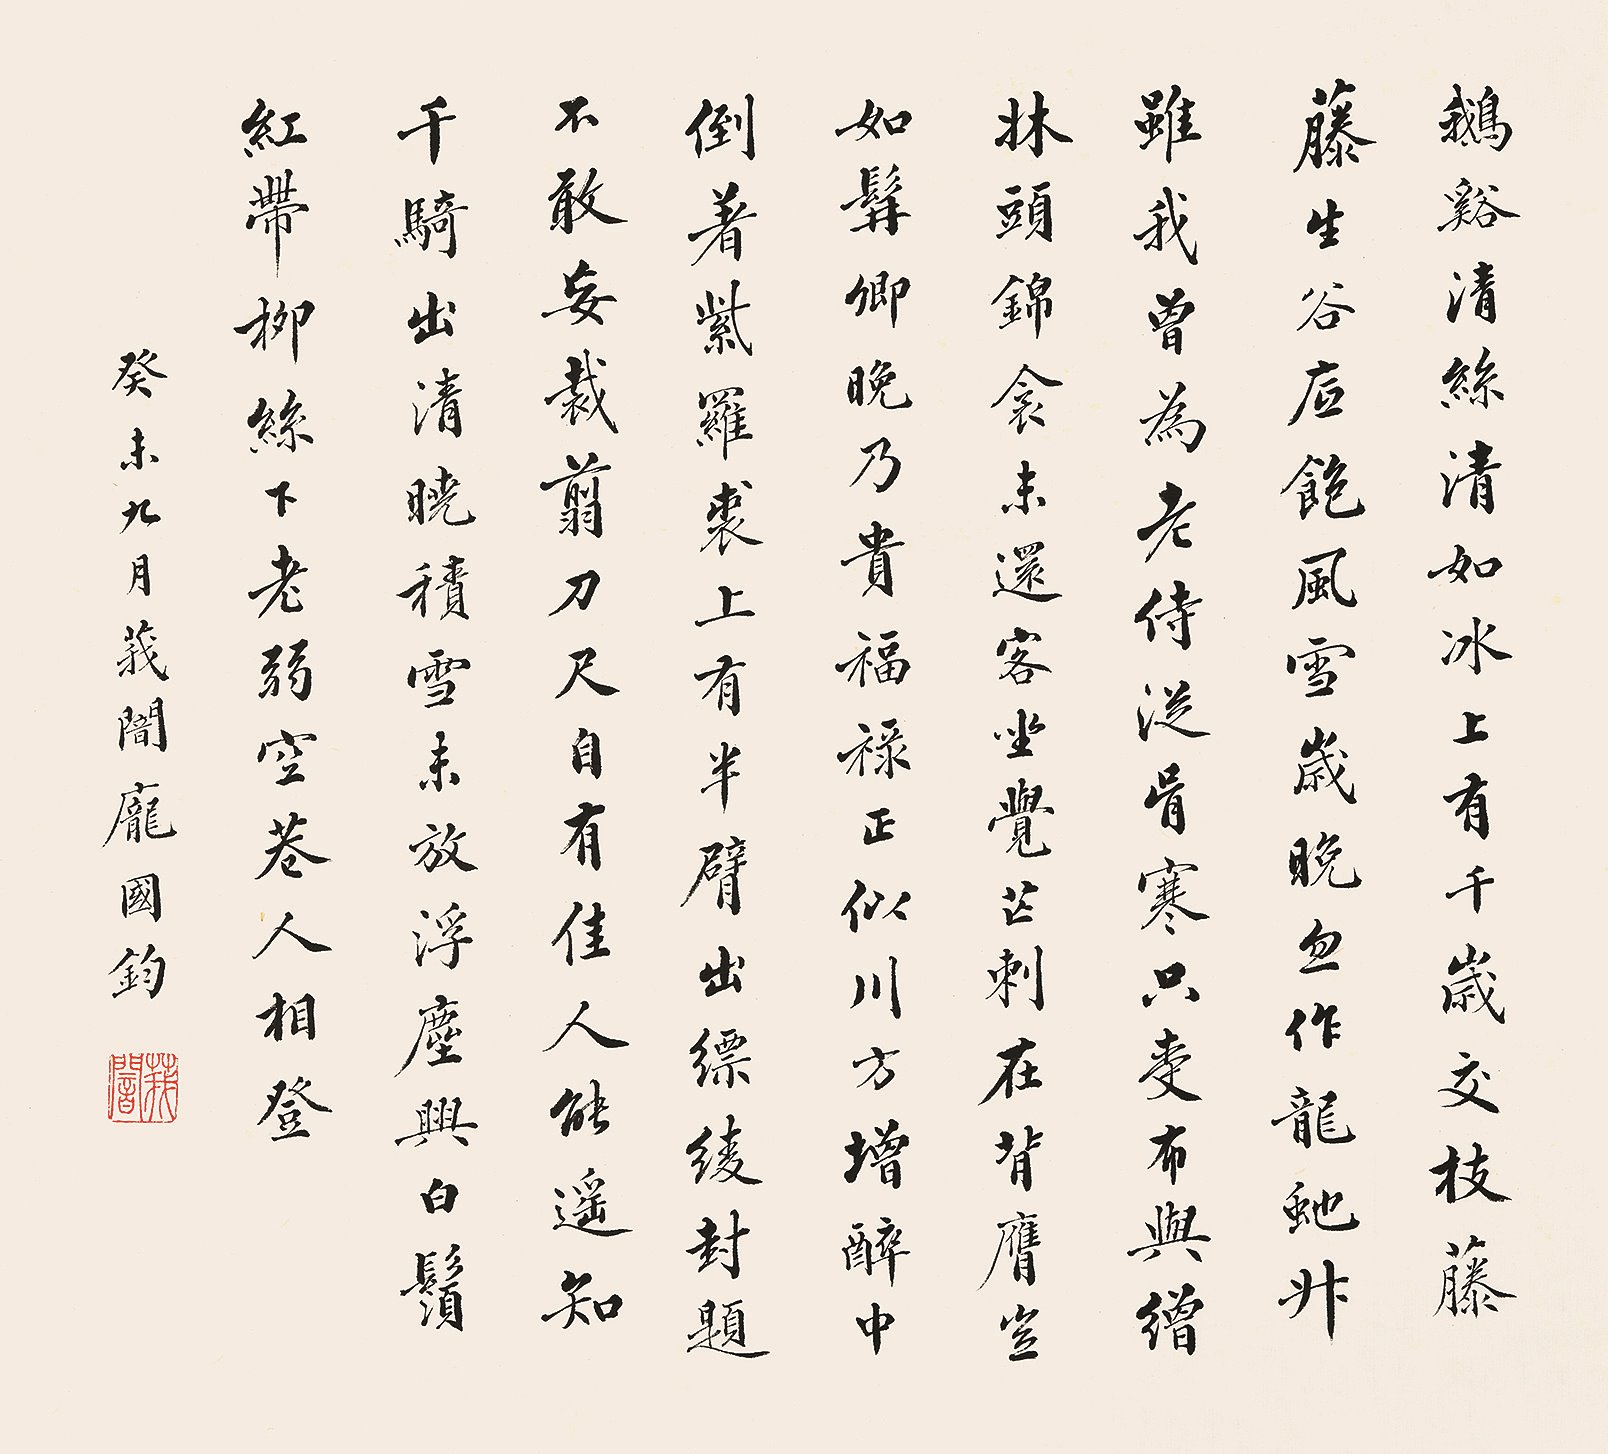 鵝谿清絲清如冰上有千歲交枝藤
藤生谷底飽風雪歲晚忽作龍虵升
雖我曾為老侍從骨寒只受布與繒
牀頭錦衾未還客坐覺芒刺在背膺豈
如髯卿晚乃貴福祿正似川方增醉中
倒著紫羅裘上有半臂出縹綾封題
不敢妄裁翦刀尺自有佳人能遥知
千騎出清曉積雪未放浮塵興白鬚
紅帶柳絲下老弱空巷人相登
癸未九月莪闇龐國鈞
莪闇